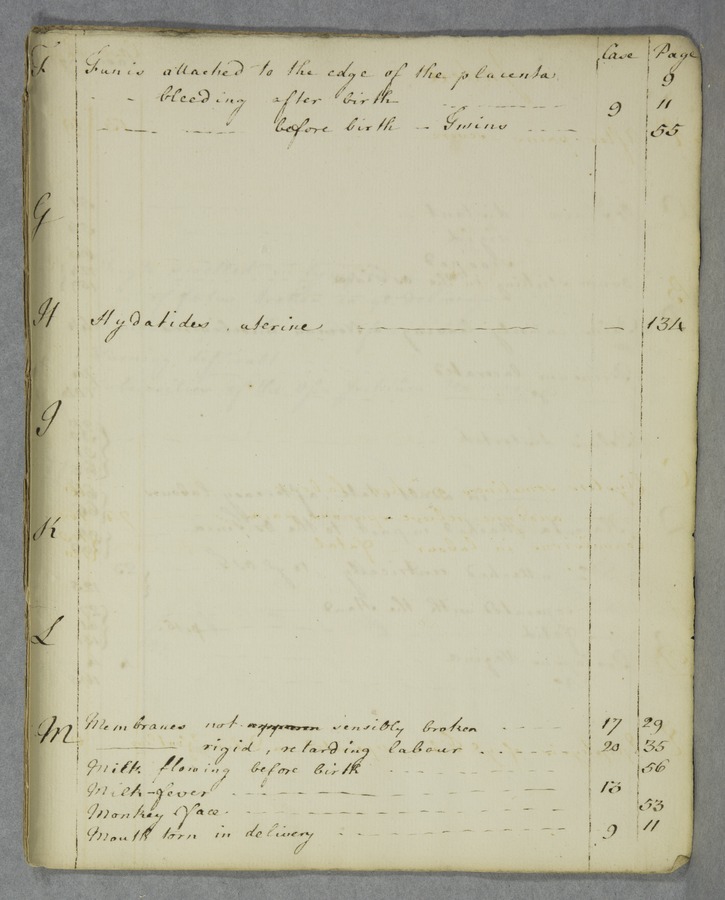 Case Page
F Funis attached to the edge of the placenta 9
- - bleeding after birth - - - 9 11
- - - - before birth - Twins - - - 55
G
H Hydatides, uterine - - - - - 134
I
K
L
M Membranes not sensibly broken - - - - 17 29
—— rigid, retarding labour - - - - 20 35
Milk flowing before birth - - - - 56
Milk-fever - - - - 13
Monkey Face - - - - 53
Mouth torn in delivery - - - - 9 11